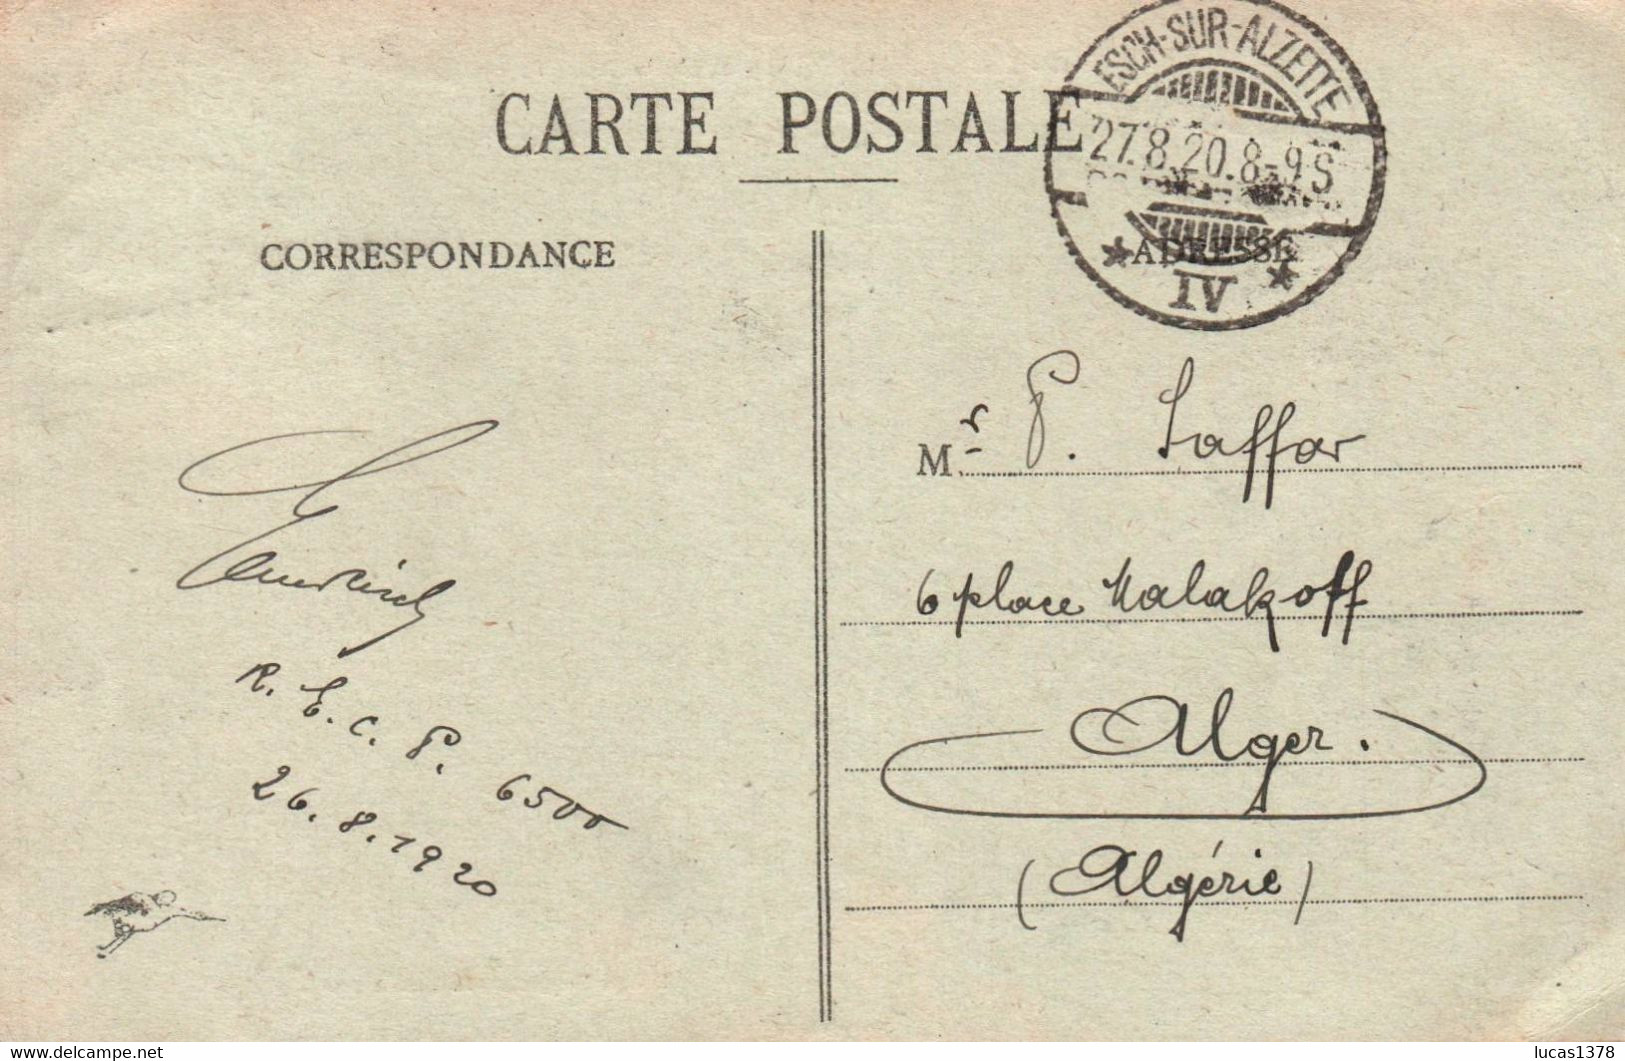 CARTE POSTALE
ESCH-SUR-ALZETTE
27.8.20.8-9S
IV
CORRESPONDANCE
ADRESSE
Mr P. Saffar
6 place Malakoff
Alger.
(Algérie)
R. E. C. P. 6500
26.8.1920
www.delcampe.net
lucas1378